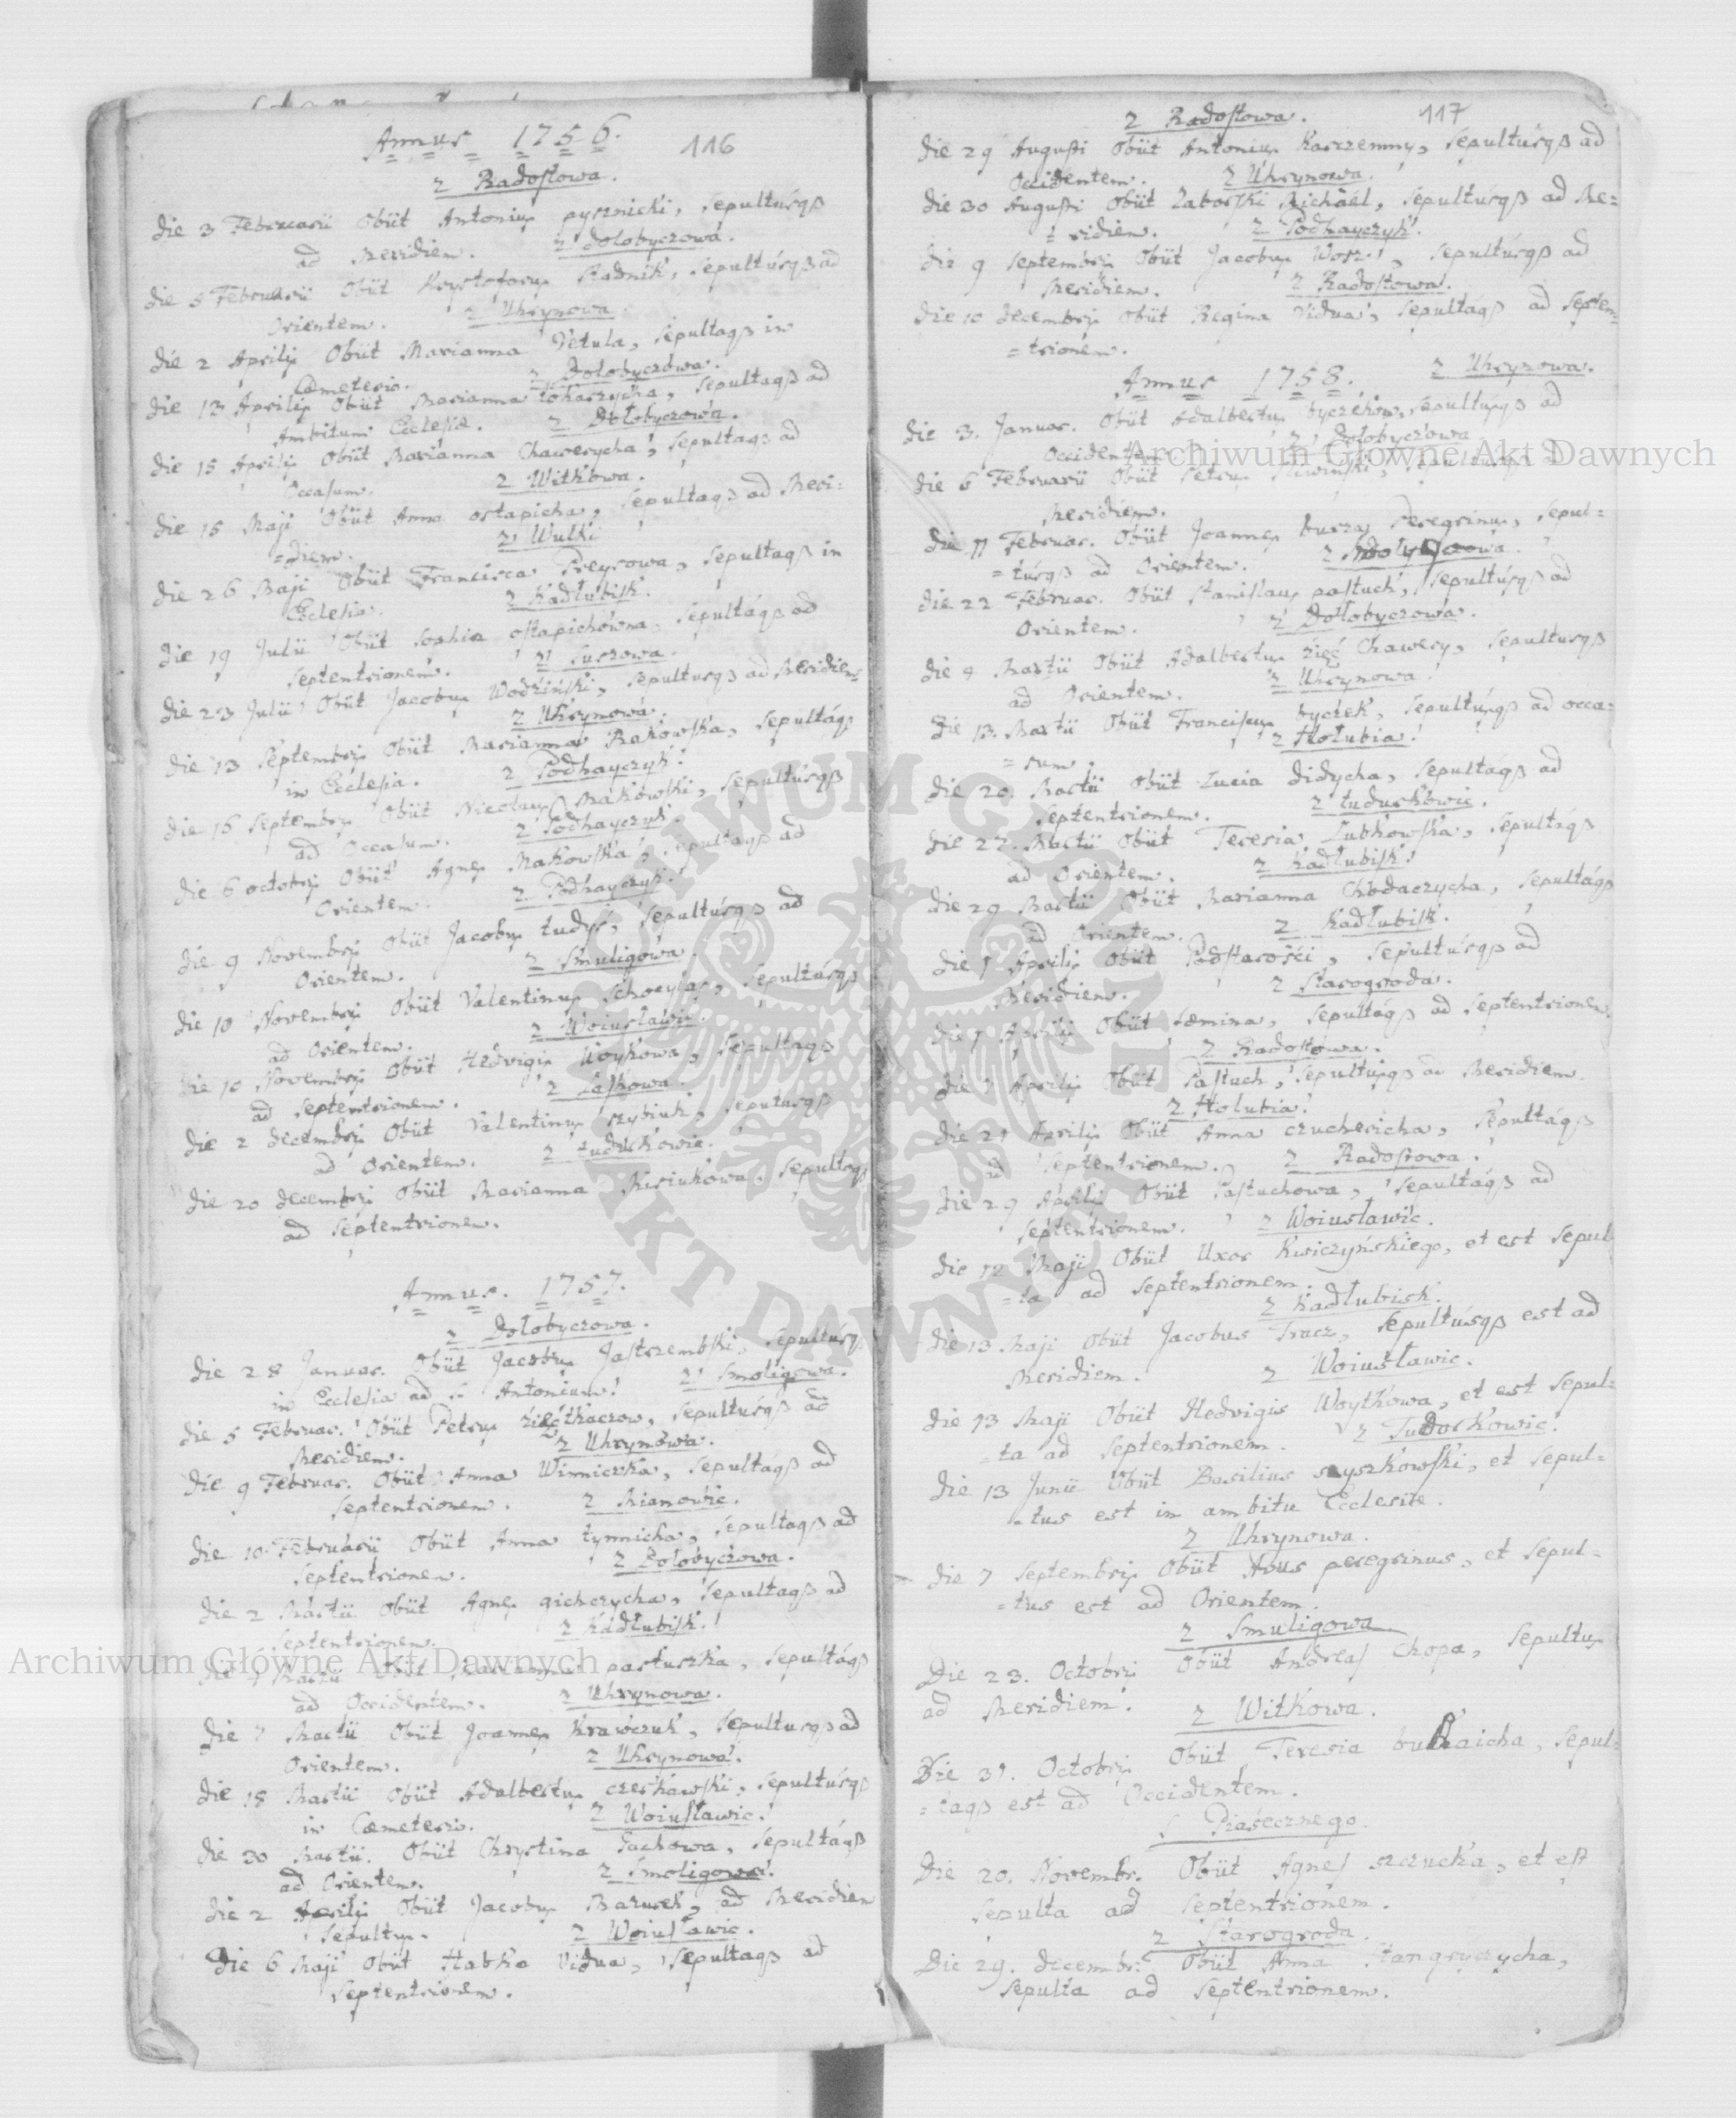 Annus 1756. 116
z Radostowa.
die 3 Februarii Obiit Antonius pysznicki, Sepultusqß
ad Meridiem. z dołobyczowa.
die 5 Februarii Obiit Krystoforus Stadnik, Sepultusqß ad
Orientem. z Uhrynowa
die 2 Aprilis Obiit Marianna Vetula, Sepultaqß in
Cæmeterio. z Dołobyczowa.
die 13 Aprilis Obiit Marianna tokarzycha, Sepultaqß ad
Ambitum Ecclesiæ. z Dołobyczowa.
die 15 Aprilis Obiit Marianna Chawerycha, Sepultaqß ad
Occasum. z Witkowa.
die 15 Maji Obiit Anna ostapicha, Sepultaqß ad Meri:
=diem. z Wulki
die 26 Maji Obiit Francisca Preysowa, Sepultaqß in
Ecclesia. z Kadłubisk.
die 19 Julii Obiit Sophia ostapichowna, Sepultaqß ad
Septentrionem. z Suszowa.
die 23 Julii Obiit Jacobus Wodziński, Sepultusqß ad Meridiem
z Uhrynowa.
die 13 Septembris Obiit Marianna Rakowska, Sepultaqß
in Ecclesia. z Podhayczyk.
die 16 Septembris Obiit Nicolaus Makowski, Sepultusqß
ad Occasum. z Podhayczyk.
die 6 octobris Obiit Agnes Makowska, Sepultaqß ad
Orientem. z Podhayczyk.
die 9 Novembris Obiit Jacobus tudyś, Sepultusqß ad
Orientem. z Smuligowa.
die 10 Novembris Obiit Valentinus Sepultusqß
ad Orientem. z Woiusławic.
die 10 Novembris Obiit Hedvigis Woykowa, Sepultaqß
ad Septentrionem. z Łaskowa.
die 2 decembris Obiit Valentinus szybiuk, Sepultusqß
ad Orientem. z tudorkowic.
die 20 decembris Obiit Marianna Misiukowa, Sepultaqß
ad Septentrionem.
Annus. 1757.
z Dołobyczowa.
die 28 Januar. Obiit Jacobus Jastrzembski, Sepultusq
in Ecclesia ad S. Antonium. z Smoligowa.
die 5 Februar. Obiit Petrus zięć tkaczow, Sepultusqß ad
Meridiem. z Uhrynowa.
die 9 Februar. Obiit Anna Winniczka, Sepultaqß ad
Septentrionem. z Mianowic.
die 10 Februarii Obiit Anna tymnicha, Sepultaqß ad
Septentrionem. z Dołobyczowa.
die 2 Martii Obiit Agnes gicherycha, Sepultaqß ad
Septentrionem. z Kadłubisk.
die 4 Martii Obiit Marianna pastuszka, Sepultaqß
ad Occidentem. z Uhrynowa.
die 7 Martii Obiit Joannes Krawczuk, Sepultusqß ad
Orientem. z Uhrynowa.
die 15 Martii Obiit Adalbertus czerkawski, Sepultusqß
in Cæmeterio. z Woiusławic.
die 30 Martii. Obiit Chrystina Pachowa, Sepultaqß
ad Orientem. z Smoligowa.
die 2 Aprilis Obiit Jacobus Mazurek, ad Meridiem
Sepultus. z Woiusławic.
die 6 Maji Obiit Habka Vidua, Sepultaqß ad
Septentrionem.
z Radostowa. 117
die 29 Augusti Obiit Antonius Karczemny, Sepultusqß ad
Occidentem. z Uhrynowa.
die 30 Augusti Obiit Zaborski Michaël, Sepultusqß ad Me=
=ridiem. z Podhayczyk.
die 9 Septembris Obiit Jacobus Worz, Sepultusqß ad
Meridiem. z Radostowa.
die 10 decembris Obiit Regina Vidua, Sepultaqß ad Septen=
=trionem.
Annus 1758. z Uhrynowa.
die 3. Januar. Obiit Adalbertus byczkow, Sepultusqß ad
Occidentem. z Dołobyczowa
die 6 Februarii Obiit Petrus Sepultusqß ad
Meridiem.
die 11 Februar. Obiit Joannes burzay Peregrinus, Sepul=
=tusqß ad Orientem. z
die 22 Februar. Obiit Stanislaus pastuch, Sepultusqß ad
Orientem. z Dołobyczowa.
die 9 Martii Obiit Adalbertus zięć Chawery, Sepultusqß
ad Orientem. z Uhrynowa.
die 13. Martii Obiit Franciscus byczek, Sepultusqß ad occa=
=sum. z Hołubia.
die 20. Martii Obiit Lucia didycha, Sepultaqß ad
Septentrionem. z tudurkowic.
die 27. Martii Obiit Teresia Lubkowska, Sepultaqß
ad Orientem. z Kadłubisk.
die 29 Martii Obiit Marianna Chodaczycha, Sepultaqß
ad Orientem. z Kadłubisk.
die 1 Aprilis Obiit Podstarości, Sepultusqß ad
Meridiem. z Starogroda.
die 1 Aprilis Obiit Fæmina, Sepultaqß ad Septentrionem.
z Radostowa.
die 1 Aprilis Obiit Pastuch, Sepultusqß ad Meridiem.
z Hołubia.
die 21 Aprilis Obiit Anna czuchericha, Sepultaqß
ad Septentrionem. z Radostowa.
die 29 Aprilis Obiit Pastuchowa, Sepultaqß ad
Septentrionem. z Woiusławic.
die 12 Maji Obiit Uxor Kwiczyńskiego, et est Sepul
=ta ad Septentrionem. z Kadłubisk.
die 13 Maji Obiit Jacobus Tracz, Sepultusqß est ad
Meridiem. z Woiusławic.
die 13 Maji Obiit Hedvigis Woytkowa, et est Sepul=
=ta ad Septentrionem. z Tudorkowic.
die 13 Junii Obiit Basilius szyszkowski, et Sepul=
=tus est in ambitu Ecclesiæ.
z Uhrynowa.
die 7 Septembris Obiit Avus peregrinus, et Sepul=
=tus est ad Orientem.
z Smuligowa
Die 23. Octobris Obiit Andreas Chopa, Sepultus
ad Meridiem. z Witkowa.
Die 31. Octobris Obiit Teresia Sepul=
=taqß est ad Occidentem.
s Piasecznego.
Die 20. Novembr. Obiit Agnes szczucka, et est
Sepulta ad Septentrionem.
z Starogroda.
Die 29. decembr. Obiit Anna Stangryczycha,
Sepulta ad Septentrionem.
Archiwum Główne Akt Dawnych
Archiwum Główne Akt Dawnych
ARCHIWUM GŁÓWNE AKT DAWNYCH